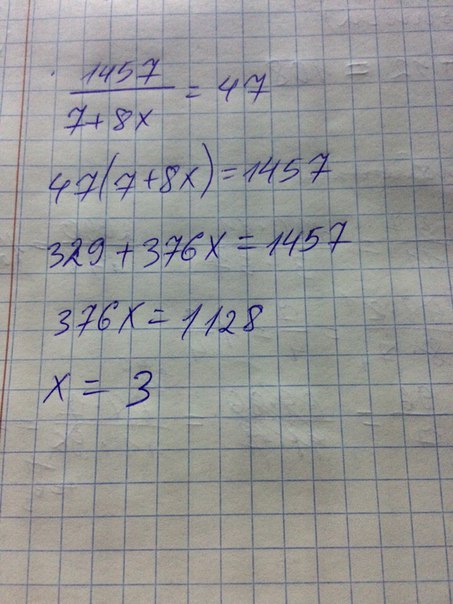 1457
/ 7+8x = 47
47(7+8x)=1457
329+376x=1457
376x=1128
x=3